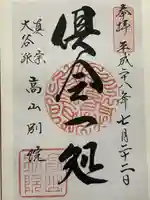 奉拝 平成二八年七月二十二日
倶会一処
真宗
大谷派
高山別院